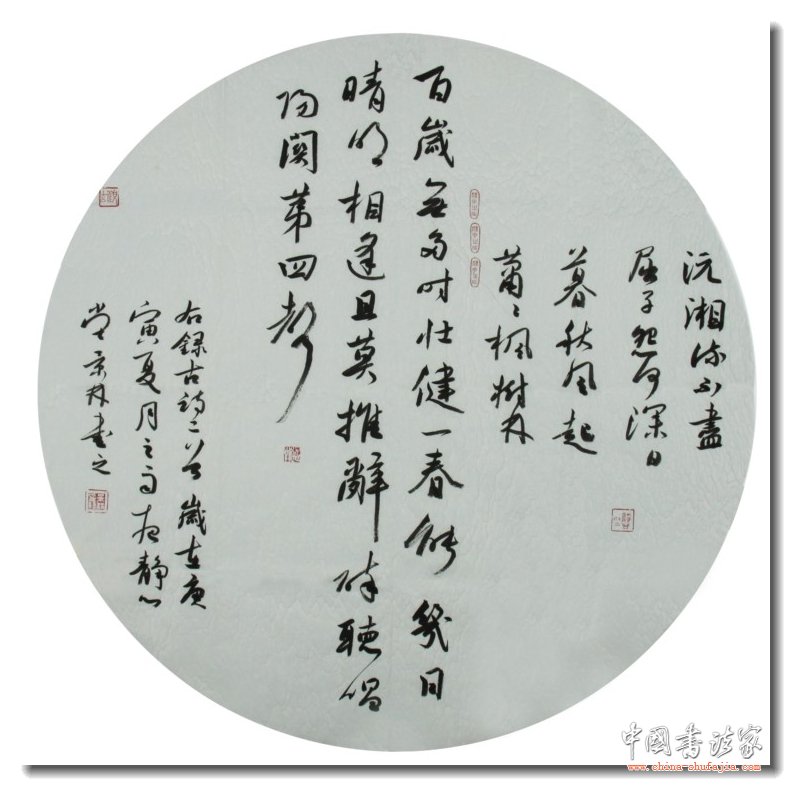 沅湘流不盡
屈子怨何深日
暮秋风起
蕭〻楓樹林
百歲無多时壯健一春能幾日
晴明相逢且莫推辭醉聽唱
陽關第四聲
右錄古詩二首歲在庚
寅夏月之雨夜靜心
堂林書之
中國书法家
www.china-shufajia.com